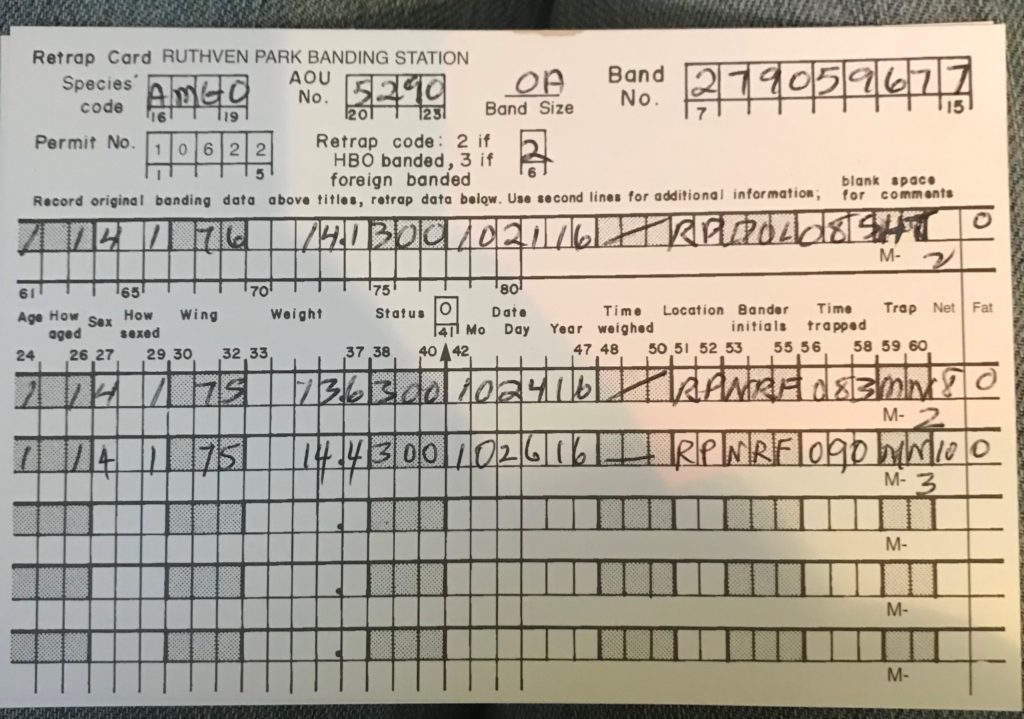 Retrap Card RUTHVEN PARK BANDING STATION
Species' code AMGO 16 19 AOU No. 5290 20 23 OA Band Size Band No. 279059677 7 15
Permit No. 10622 1 5 Retrap code: 2 if HBO banded, 3 if foreign banded 2 6
Record original banding data above titles, retrap data below. Use second lines for additional information; blank space for comments
1 1 4 1 76 14.1 300 102116 — RP DOL 085 0
M- 2
61 65 70 75 80
Age How aged Sex How sexed Wing Weight Status 0 41 Mo Date Day Year Time weighed Location Bander initials Time trapped Trap Net Fat
24 26 27 29 30 32 33 37 38 40 42 47 48 50 51 52 53 55 56 58 59 60
1 1 4 1 75 13.6 300 102416 — RP NRF 083 MN 8 0
M- 2
1 1 4 1 75 14.4 300 102616 — RP NRF 090 10 0
M- 3
M-
M-
M-